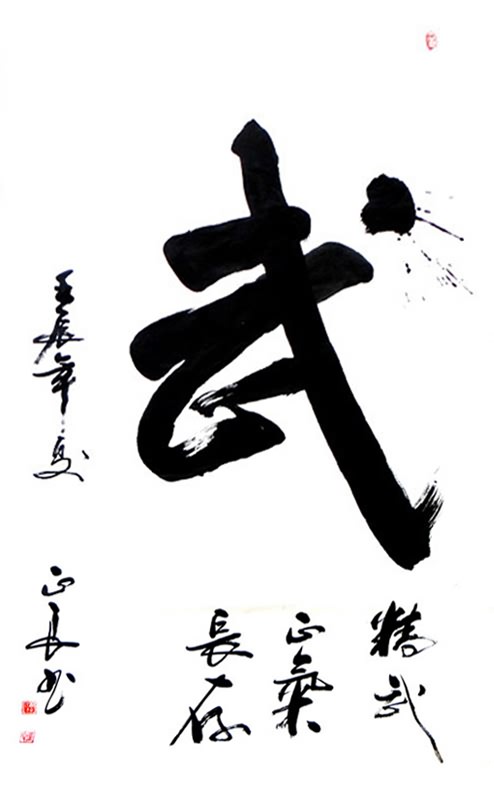 武
精武
正氣
長存
壬辰年夏
正長书